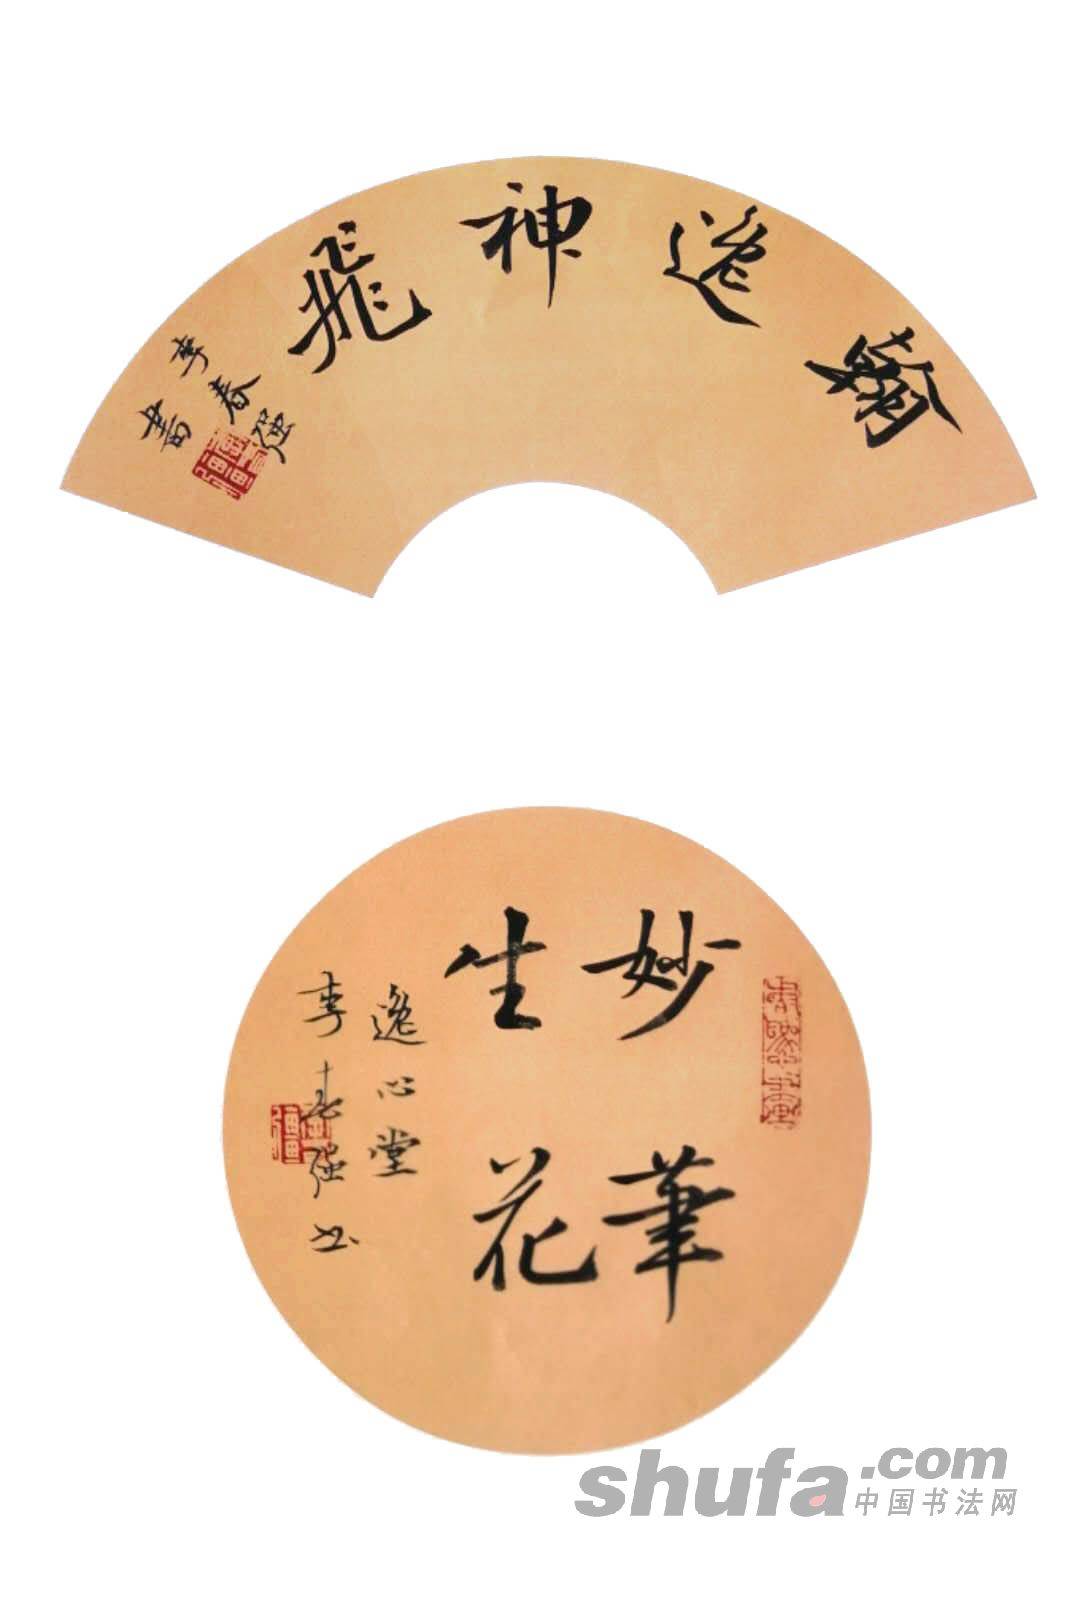 翰逸神飛
李春強
書
妙筆
生花
逸心堂
李春强书
shufa.com
中国书法网